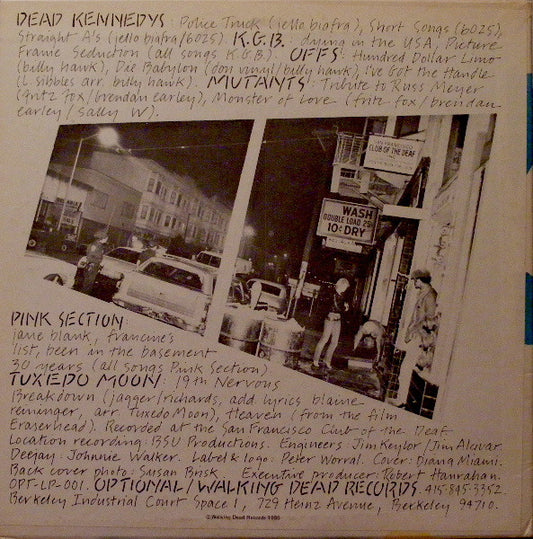 DEAD KENNEDYS: Police Truck (jello biafra), Short Songs (6025),
Straight A's (jello biafra/6025). K.G.B.: dying in the USA, Picture
Frame Seduction (all songs K.G.B.). OFFS: Hundred Dollar Limo
(billy hawk), Die Babylon (don vinyl/billy hawk), I've Got the Handle
(L. Sibbles arr. billy hawk). MUTANTS: Tribute to Russ Meyer
(fritz fox/brendan earley), Monster of Love (fritz fox/brendan
earley/Sally W).
SAN FRANCISCO
CLUB OF THE DEAF
WASH
DOUBLE LOAD 25¢
10¢ DRY
PINK SECTION:
jane blank, francine's
list, been in the basement
30 years (all songs Pink Section)
TUXEDO MOON: 19th Nervous
Breakdown (jagger/richards, add. lyrics blaine
reininger, arr. Tuxedo Moon), Heaven (from the film
Eraserhead). Recorded at the San Francisco Club of the Deaf
Location recording: BSU Productions. Engineers: Jim Keylor/Jim Alcivar.
Deejay: Johnnie Walker. Label & logo: Peter Worral. Cover: Diana Miami.
Back cover photo: Susan Brisk. Executive producer: Robert Hanrahan.
OPT-LP-001. OPTIONAL/WALKING DEAD RECORDS. 415-845-3352.
Berkeley Industrial Court Space 1, 729 Heinz Avenue, Berkeley 94710.
©Walking Dead Records 1980